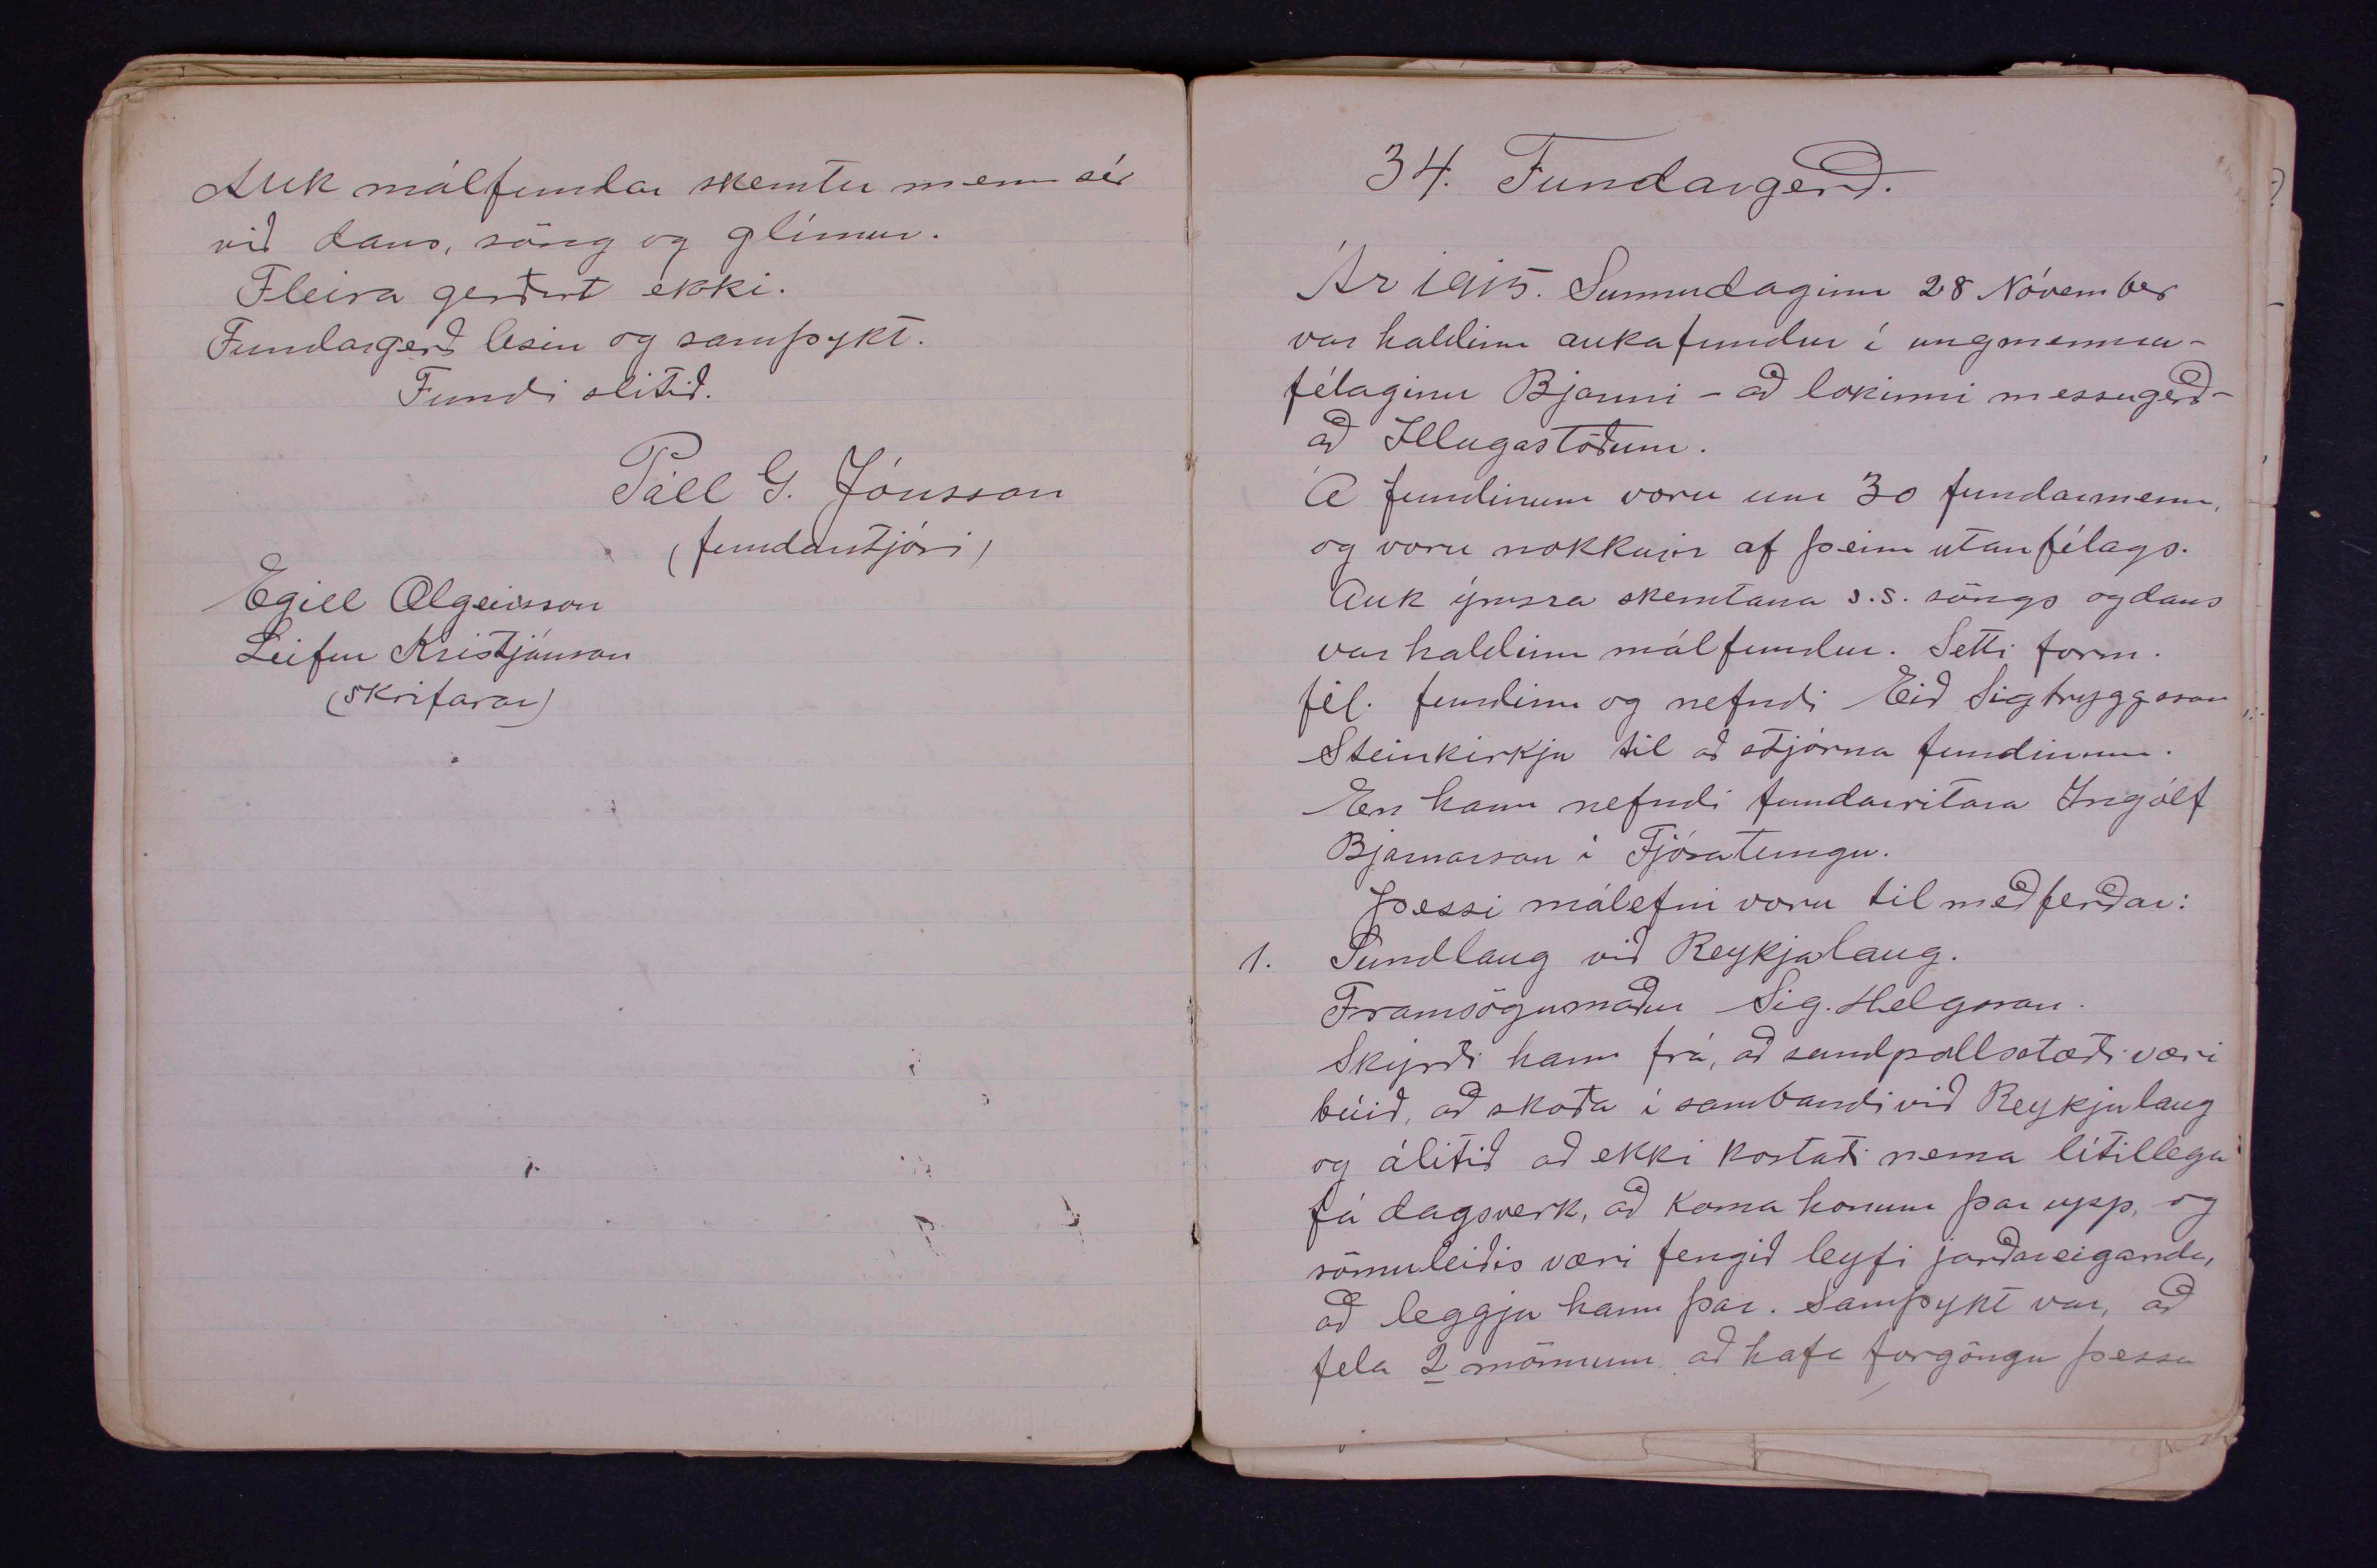 Auk málfundar skemtu menn sér
við dans, söng og glímur.
Fleira gerðist ekki.
Fundargerð lesin og samþykt.
Fundi slitið.
Páll G. Jónsson
(fundarstjóri)
Egill Olgeirsson
Leifur Kristjánsson
(skrifarar)
34. Fundargerð.
Ár 1915. Sunnudaginn 28 Nóvember
var haldinn aukafundur í ungmenna-
félaginu Bjarmi - að lokinni messugerð -
að Illugastöðum.
Á fundinum voru um 30 fundarmenn,
og voru nokkurir af þeim utanfélags.
Auk ýmsra skemtana s.s. söngs og dans
var haldinn málfundur. Setti form.
fél. fundinn og nefndi Eið Sigtryggsson
Steinkirkju til að stjórna fundinum.
En hann nefndi fundarritara Ingólf
Bjarnarson í Fjósatungu.
Þessi málefni voru til meðferðar:
1. Sundlaug við Reykjalaug.
Framsögumaður Sig. Helgason.
Skýrði hann frá, að sundpollsstæði væri
búið, að skoða í sambandi við Reykjalaug
og álitið að ekki kostaði nema lítillega
fá dagsverk, að koma honum þar upp, og
sömuleiðis væri fengið leyfi jarðareiganda,
að leggja hann þar. Samþykt var, að
fela 2 mönnum að hafa forgöngu þessa